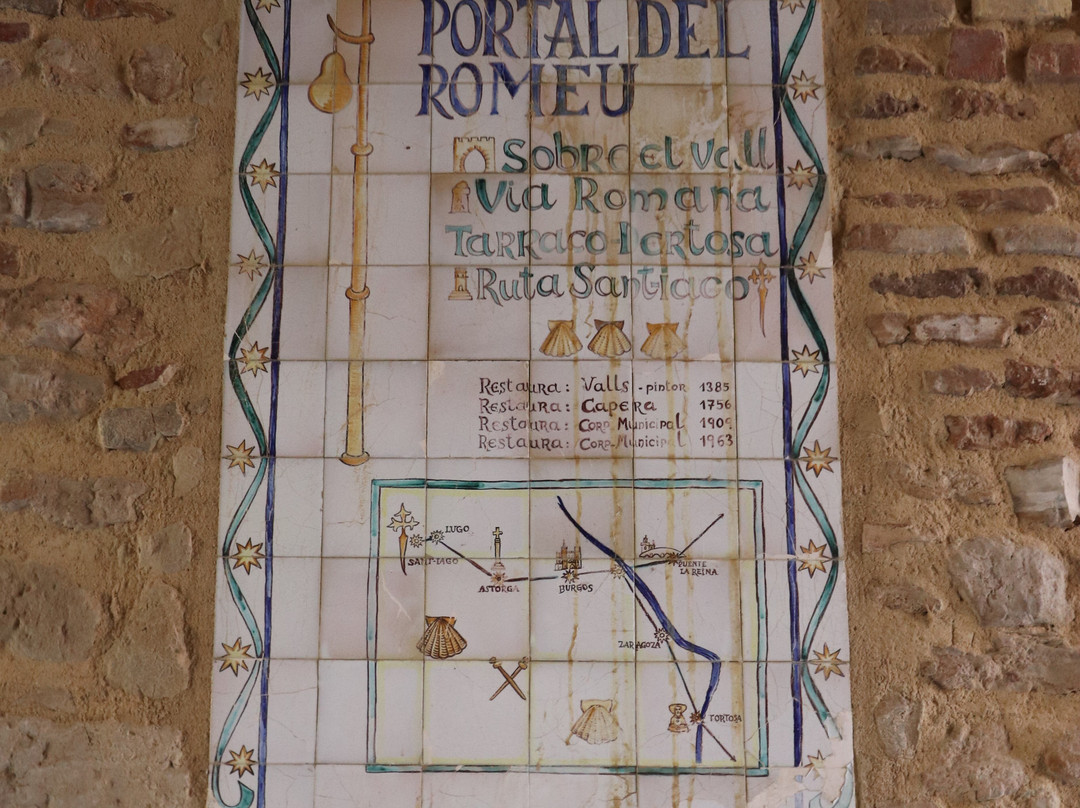 PORTAL DEL
ROMEU
Sobre el Vall
Via Romana
Tarraco Dertosa
Ruta Santiago
Restaura: Valls - pintor 1385
Restaura: Capera 1756
Restaura: Corp. Municipal 1909
Restaura: Corp. Municipal 1963
LUGO
SANTIAGO
ASTORGA
BURGOS
PUENTE
LA REINA
ZARAGOZA
TORTOSA